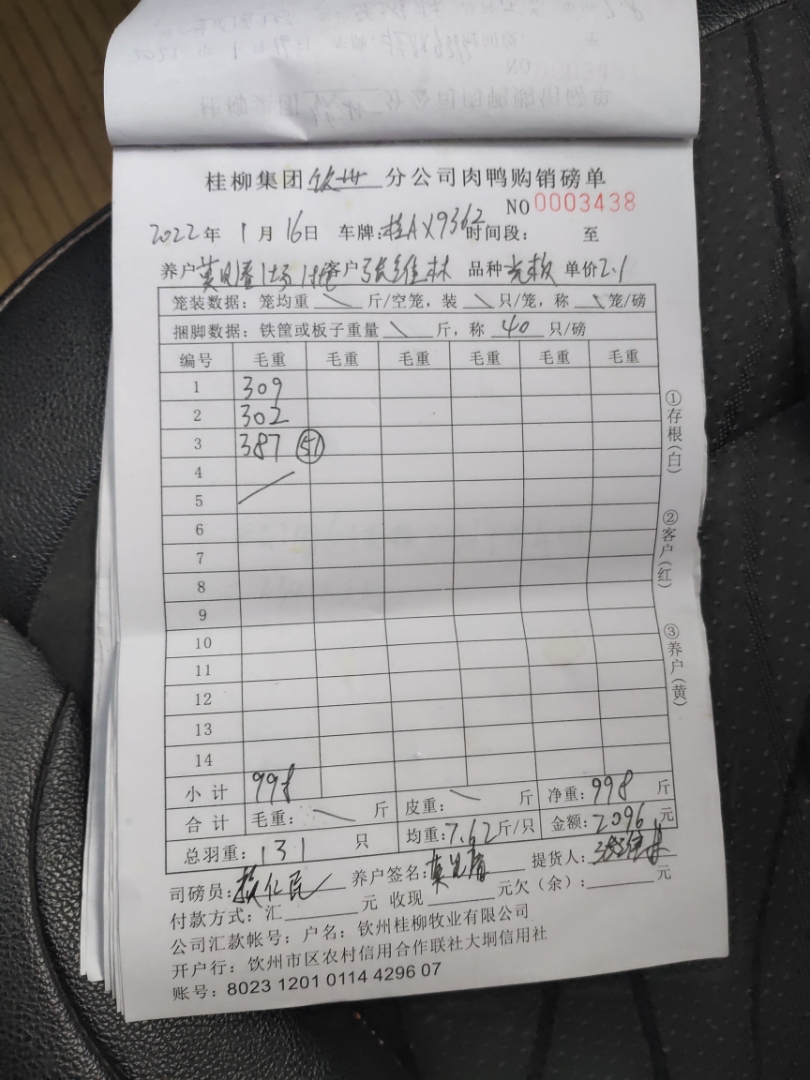 桂柳集团 钦州 分公司肉鸭购销磅单
NO 0003438
2022年 1月 16日 车牌:桂AX9362 时间段: 至
养户 莫 客户 张维林 品种 光板 单价 2.1
笼装数据: 笼均重 \ 斤/空笼, 装 \ 只/笼, 称 \ 笼/磅
捆脚数据: 铁筐或板子重量 \ 斤, 称 40 只/磅
编号 毛重 毛重 毛重 毛重 毛重 毛重
1 309
2 302
3 387 51
4
5
6
7
8
9
10
11
12
13
14
小计 998
合计 毛重: \ 斤 皮重: \ 斤 净重: 998 斤
总羽重: 131 只 均重: 7.62 斤/只 金额: 2096 元
司磅员: 养户签名: 莫 提货人: 张维林
付款方式: 汇 元 收现 元欠(余): 元
公司汇款帐号: 户名: 钦州桂柳牧业有限公司
开户行: 钦州市区农村信用合作联社大垌信用社
账号: 8023 1201 0114 4296 07
①存根(白)
②客户(红)
③养户(黄)